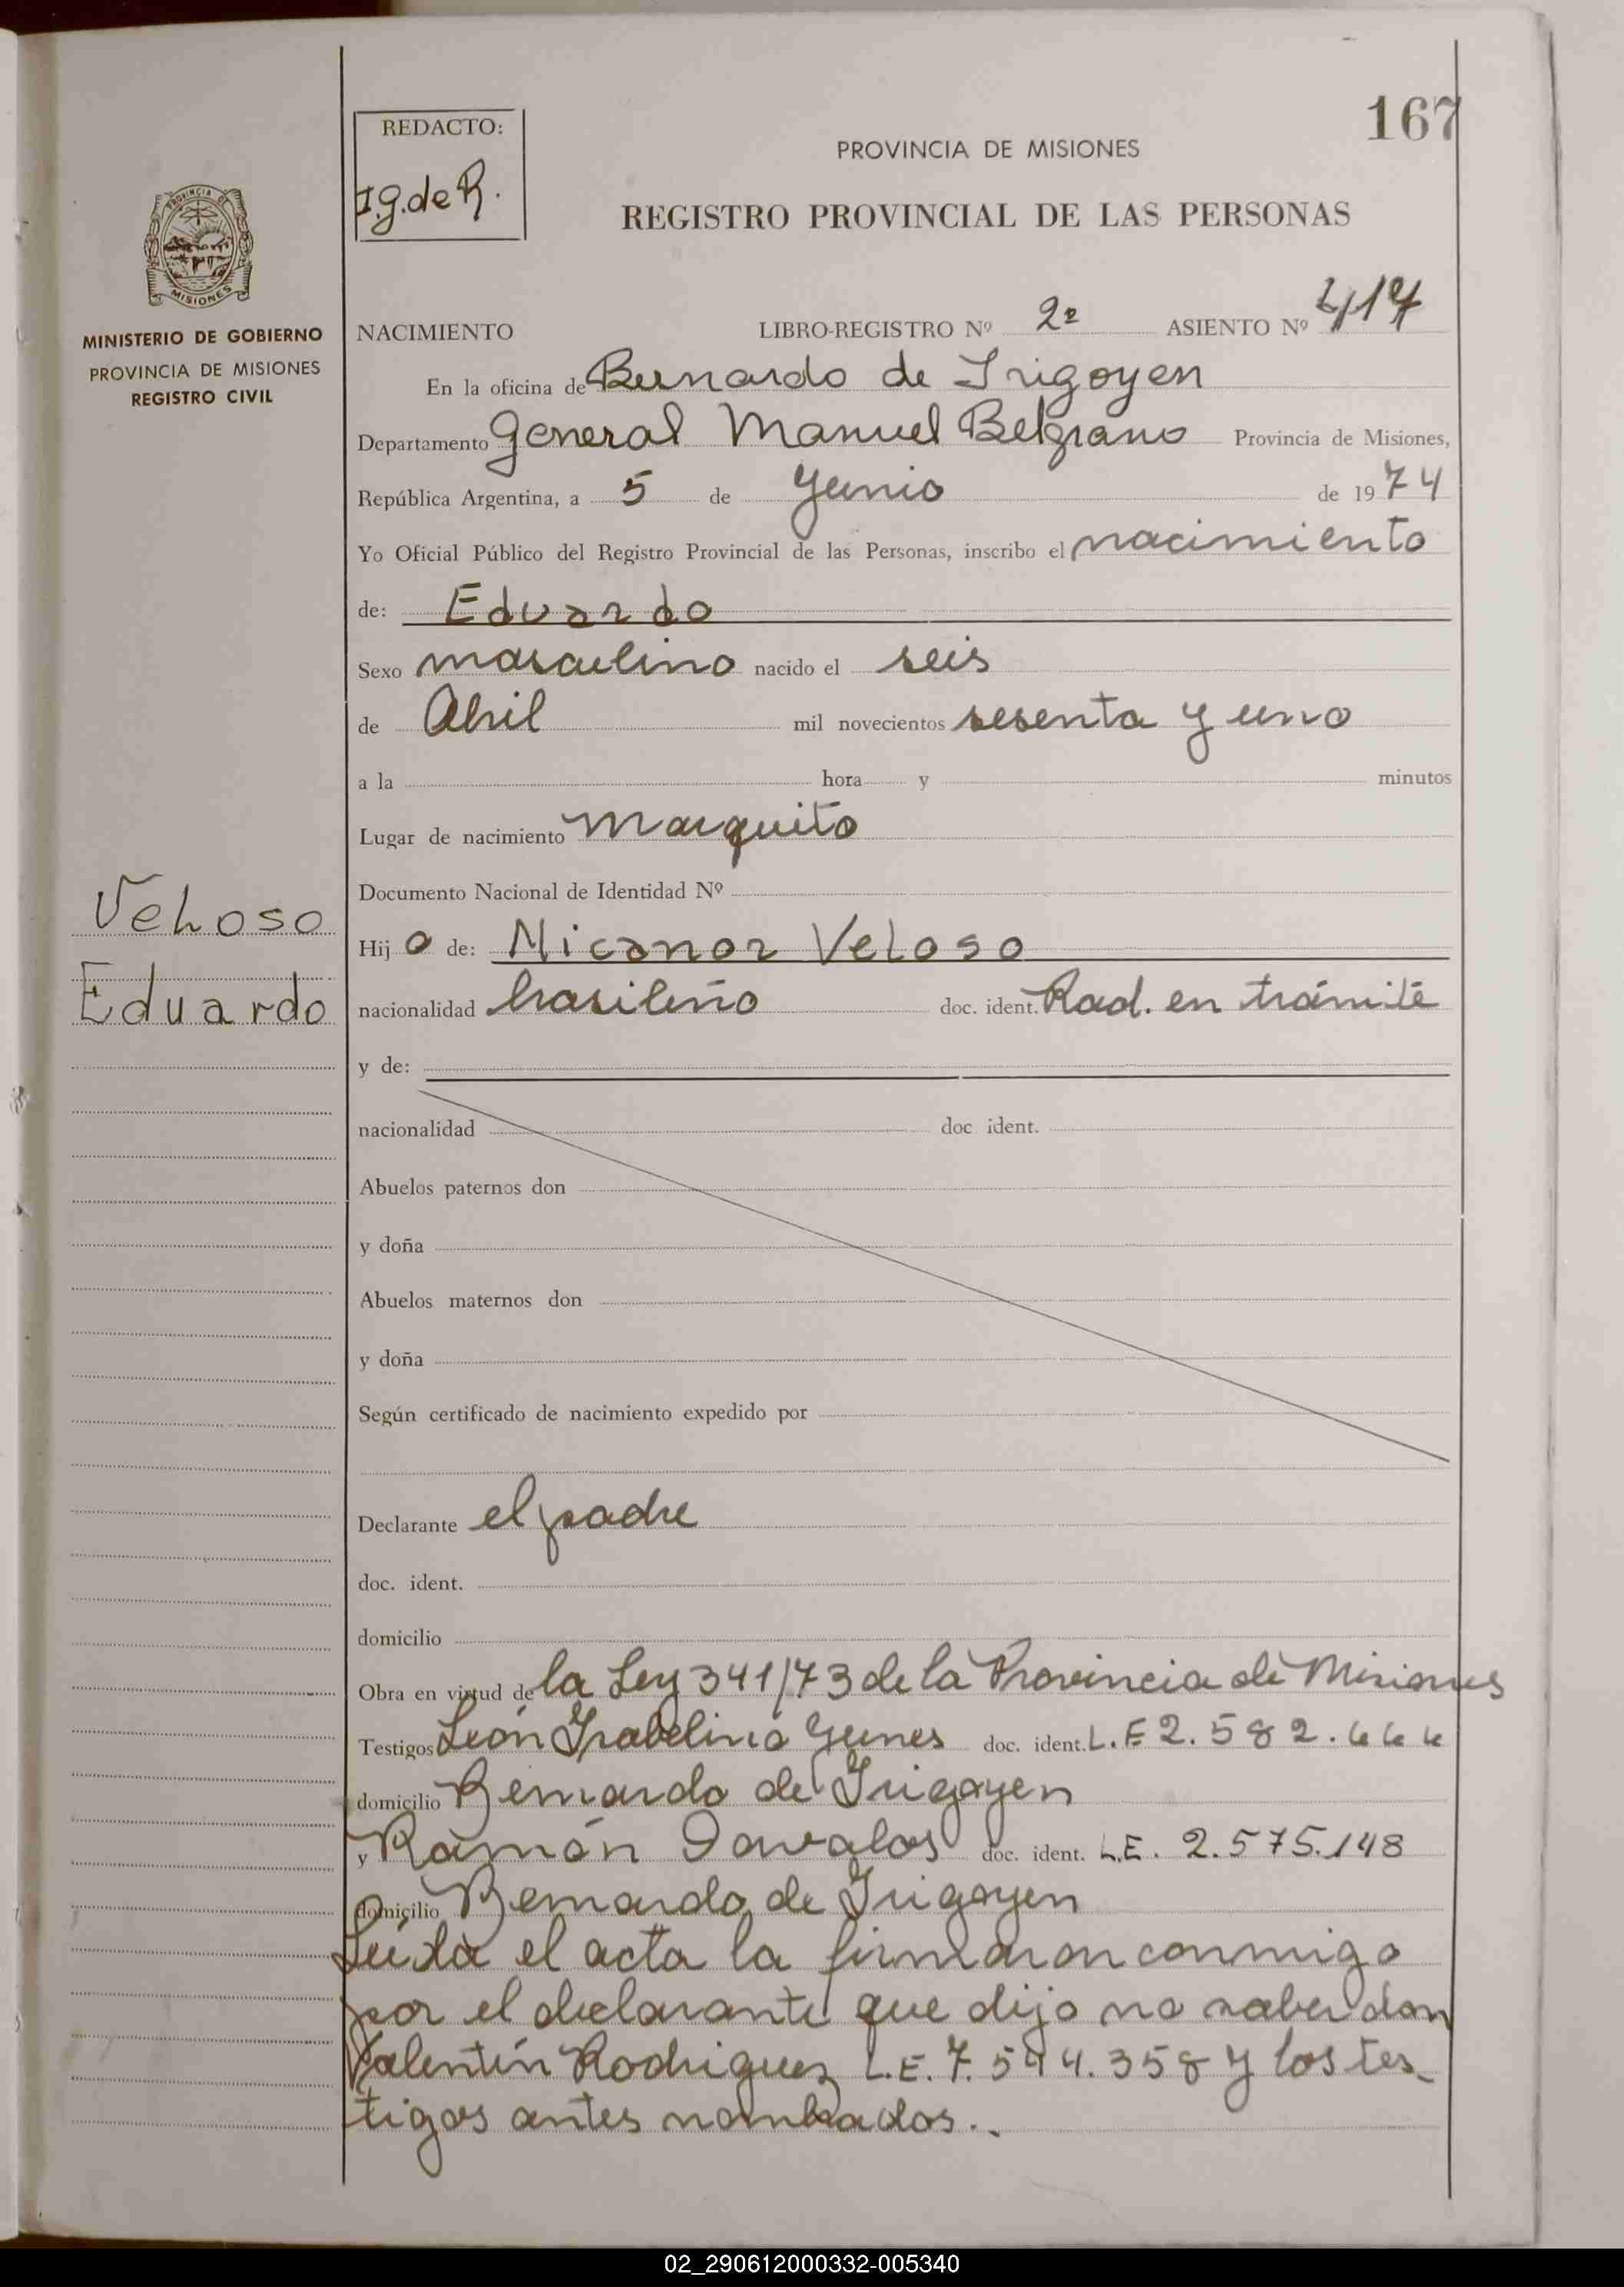 167
REDACTO:
I.g.de R.
PROVINCIA DE MISIONES
REGISTRO PROVINCIAL DE LAS PERSONAS
PROVINCIA DE
MISIONES
MINISTERIO DE GOBIERNO
PROVINCIA DE MISIONES
REGISTRO CIVIL
NACIMIENTO LIBRO-REGISTRO Nº 2º ASIENTO Nº 417
En la oficina de Bernardo de Irigoyen
Departamento General Manuel Belgrano Provincia de Misiones,
República Argentina, a 5 de Junio de 1974
Yo Oficial Público del Registro Provincial de las Personas, inscribo el nacimiento
de: Eduardo
Sexo masculino nacido el seis
de Abril mil novecientos sesenta y uno
a la hora y minutos
Lugar de nacimiento Marquito
Documento Nacional de Identidad Nº
Veloso
Hijo de: Nicanor Veloso
Eduardo
nacionalidad brasileño doc. ident. Rad. en trámite
y de:
nacionalidad doc ident.
Abuelos paternos don
y doña
Abuelos maternos don
y doña
Según certificado de nacimiento expedido por
Declarante el padre
doc. ident.
domicilio
Obra en virtud de la Ley 341/73 de la Provincia de Misiones
Testigos León Isabelino Yunes doc. ident. L.E 2.582.444
domicilio Bernardo de Irigoyen
y Ramón Davalos doc. ident. L.E. 2.575.148
domicilio Bernardo de Irigoyen
Leída el acta la firmaron conmigo
por el declarante que dijo no saber don
Valentín Rodriguez L.E. 7.544.358 y los tes-
tigos antes nombrados.-
02_290612000332-005340